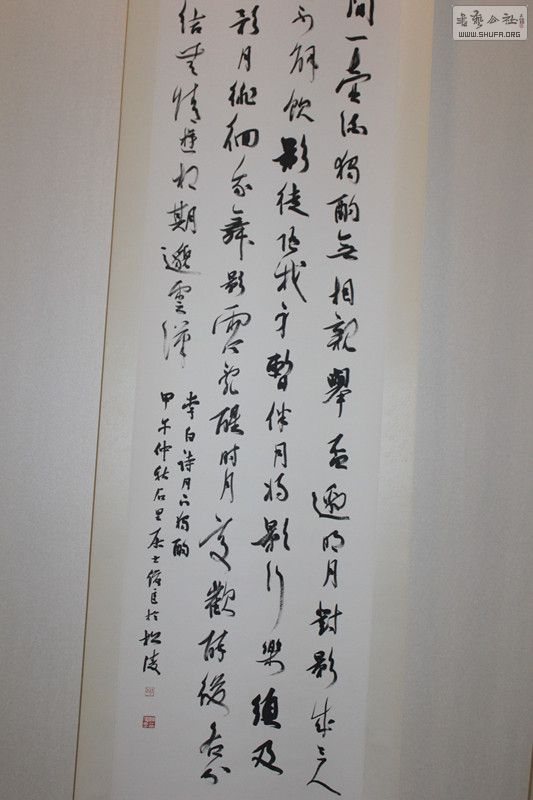 間一壺酒獨酌無相親舉盃邀明月對影成三人
不解飲影徒隨我身暫伴月將影行樂須及
歌月徘徊我舞影零亂醒時同交歡醉後各分
結無情遊相期邈雲漢
李白詩月下獨酌
甲午仲秋石里居士於松陵
書藝公社
WWW.SHUFA.ORG